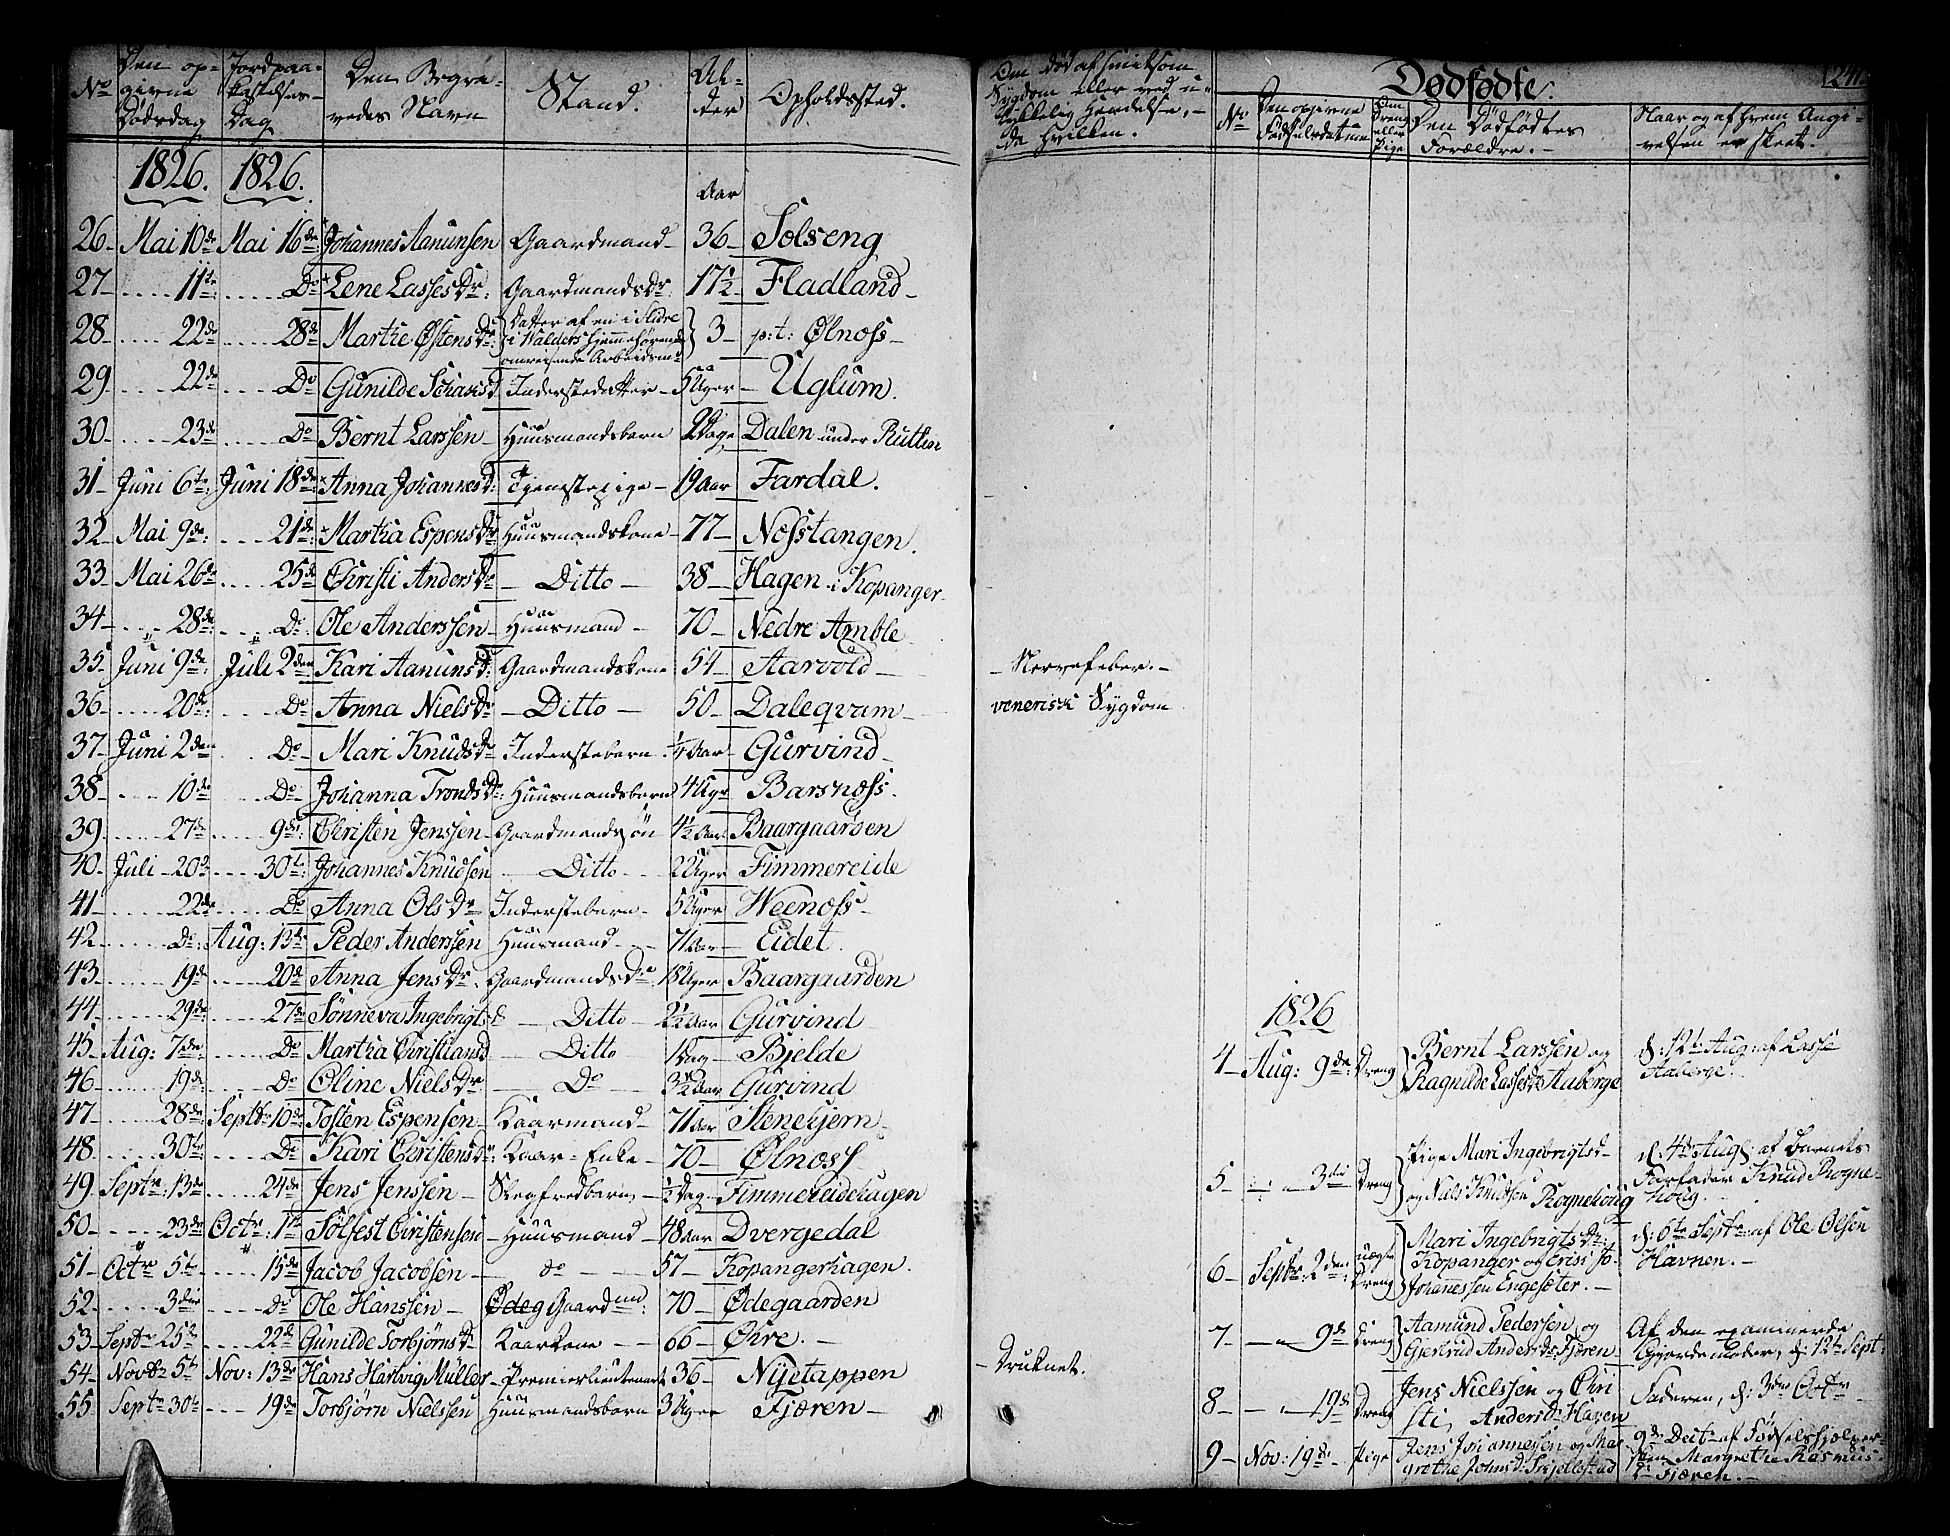 No
Den op-
givne
Dødsdag
Jordpaa-
kastelses-
Dag
Den Begra-
vedes Navn
Stand.
Al-
der
Opholdssted.
Om død af smitsom
Sygdom eller ved u-
lykkelig Hændelse,
da hvilken.
1826. 1826.
Aar
26 Mai 10de Mai 16de Johannes Aanunsen Gaardmand 36 Solseng
27 11te Do Lene LassesDr: Gaardmandsdr 17½ Fladland
28 22de 28de Marthe ØstensDr: Datter af en i Slidre i Walders hjemmehørende omreisende Arbeidsmd 3 p:t: Ølnoss
29 22de Do Gunilde Johansd Inderstedatter 5 Uger Uglum.
30 23de Do Bernt Larssen Huusmandsbarn 2 Dage Dalen under Rutlin
31 Juni 6te Juni 18de Anna Johannesd: Tjenestepige 19 Aar Fardal.
32 Mai 9de 21de Martha EspensDr Huusmandskone 77 Nosstangen.
33 Mai 26de 25de Christi AndersDr Ditto 38 Hagen i Kopanger
34 28de Do Ole Anderssen Huusmand 70 Nedre Amble
35 Juni 9de Juli 2den Kari Aanunsd: Gaardmandskone 54 Aarvold Nervefeber.
36 20de Do Anna NielsDr Ditto 50 Daleqvam venerisk Sygdom
37 Juni 2den Do Mari KnudsDr Inderstebarn ¼ Aar Gurvind
38 10de Do Johanna TrondsDr: Huusmandsbarn 4 Ugr Barsnæss.
39 27de 9de Christen Jenssen Gaardmandssøn 4½ Aar Baargaarden
40 Juli 20de 30te Johannes Knudsen Ditto 2 Uger Fimmereide
41 22de Do Anna OlsDr Inderstebarn 5 Uger Weenoss
42 Do: Aug: 13de Peder Anderssen Huusmand 71 Aar Eidet.
43 19de 20de Anna JensDr Gaardmandsdr 18 Uger Baargaarden
44 29de 27de Sønneva Ingebrigtsd Ditto 2½ Aar Gurvind
45 Aug: 7de Do Martha Christiansd Ditto 1 Dag Bjelde
46 19de Do Oline NielsDr Do 3½ Aar Gurvind
47 28de Septbr 10de Tosten Espensen Kaarmand 71 Aar Stenehjem
48 30te Do Kari ChristensDr: Kaar-Enke 70 Ølnoss
49 Septr: 13de 24de Jens Jenssen Slegfredbarn ½ Dag Fimmereidehagen
50 23de Octr: 1te Sølfest Christensen Huusmand 48 Aar Dvergedal
51 Octr 5te 15de Jacob Jacobsen do 57 Kopangerhagen.
52 3die Do Ole Hanssen Gaardmd: 70 Ødegaarden
53 Septr 25de 22de Gunilde Torbjørnsdr Kaarkone 66 Øvre.
54 Novbr 5te Nov: 13de Hans Hartvig Müller Premierlieutenant 36 Nyetappen Druknet.
55 Septr 30te 19de Torbjørn Nielssen Huusmandsbarn 3 Uger Fjæren
Dødfødte.
241
No
Den opgivne
Fødselsdatum
Om
Dreng
eller
Pige
Den Dødfødtes
Forældre.
Naar og af hvem Angi-
velsen er skeet.
1826
4 Aug: 9de Dreng Bernt Larssen og Ragnilde Lassesdr Aaberge d: 12te Aug: af Lasse Aaberge.
5 3die Dreng Pige Mari Ingebrigtsd og Niels Knudsen Rognehoug d. 4de Aug: af Barnets Farfader Knud Rogne-houg.
6 Septbr: 2den uægte Dreng Mari IngebrigtsDr: Kopanger og Johannessen Engeseter. d: 6te Septbr af Ole Olsen Havnen.
7 9de Dreng Aamund Pedersen og Gjertrud Andersdr Fjæren Af den examinerede Gjordemoder, d: 12te Sept:
8 19de Dreng Jens Nielssen og Chri sti Andersdr Hagen Faderen, d: 3de Octbr
9 Nov: 19de Pige Jens Johannessen og Mar grethe Johnsdr 9de Decbr af Fødselshjelper sken Margrethe Rasmus d: Fjæren.